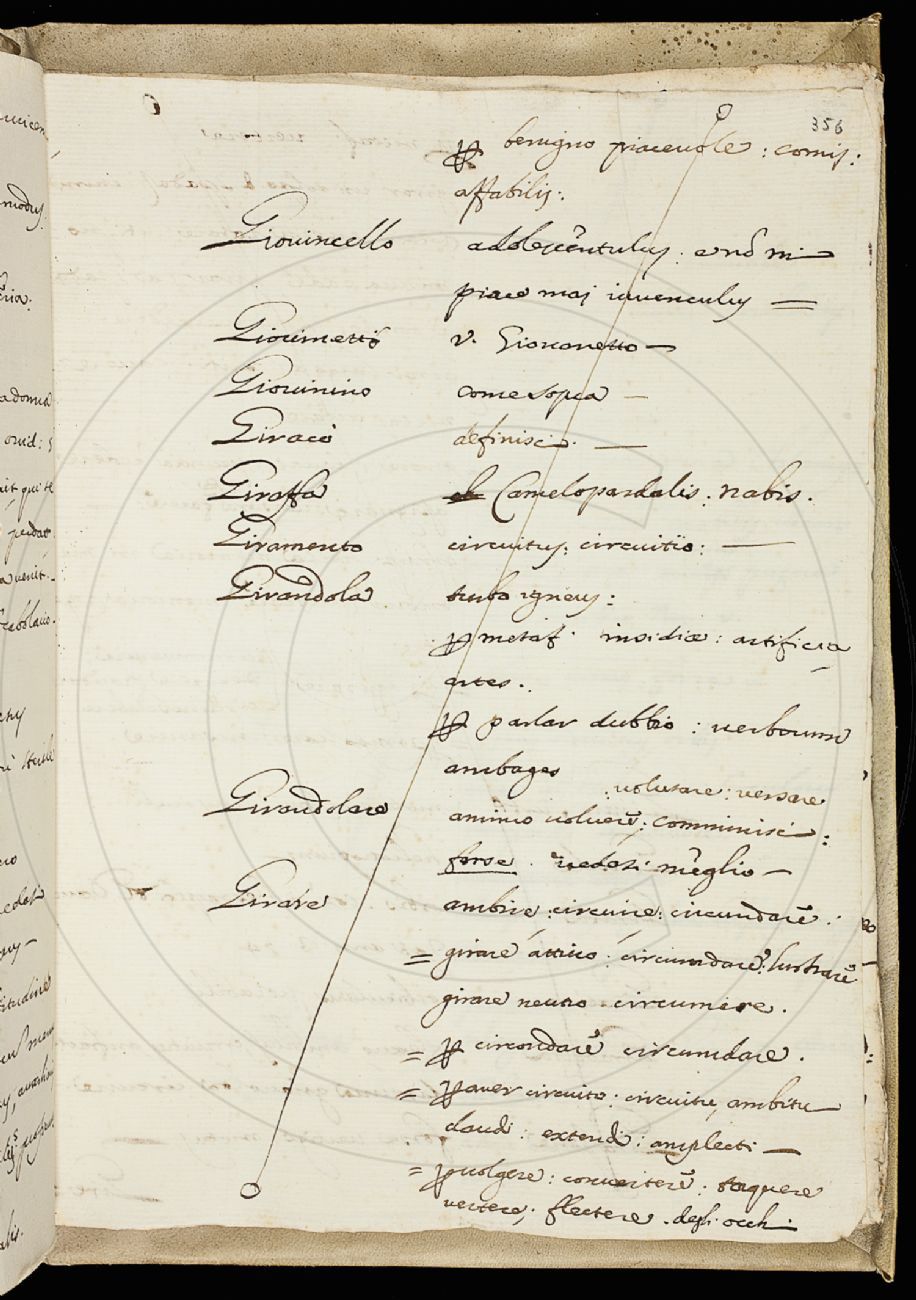 356
p benigno piaceuole : comis :
affabilis :
Giouincello adolescentulus : e nō mi
piace mai iuuenculus =
Giouinetto v. Giouanetto —
Giouinino come sopra —
Giraco definisci. —
Giraffa Camelopardalis : nabis .
Giramento circuitus : circuitio : —
Girandola tubo igneus :
p metaf. insidiæ : artificia
artes .
p parlar dubbio : verborum
ambages
: volutare : versare
Girandolare animo uoluere : comminisci :
forse . uedasi meglio —
Girare ambire : circuire : circundare :
= girare attiuo : circumdare : lustrare
girare neutro circumire .
= p circondare circumdare .
= p auer circuito : circuitu, ambitu
claudi : extendi : amplecti —
= p uolgere : conuertere : torquere
vertere ; flectere . degli occhi